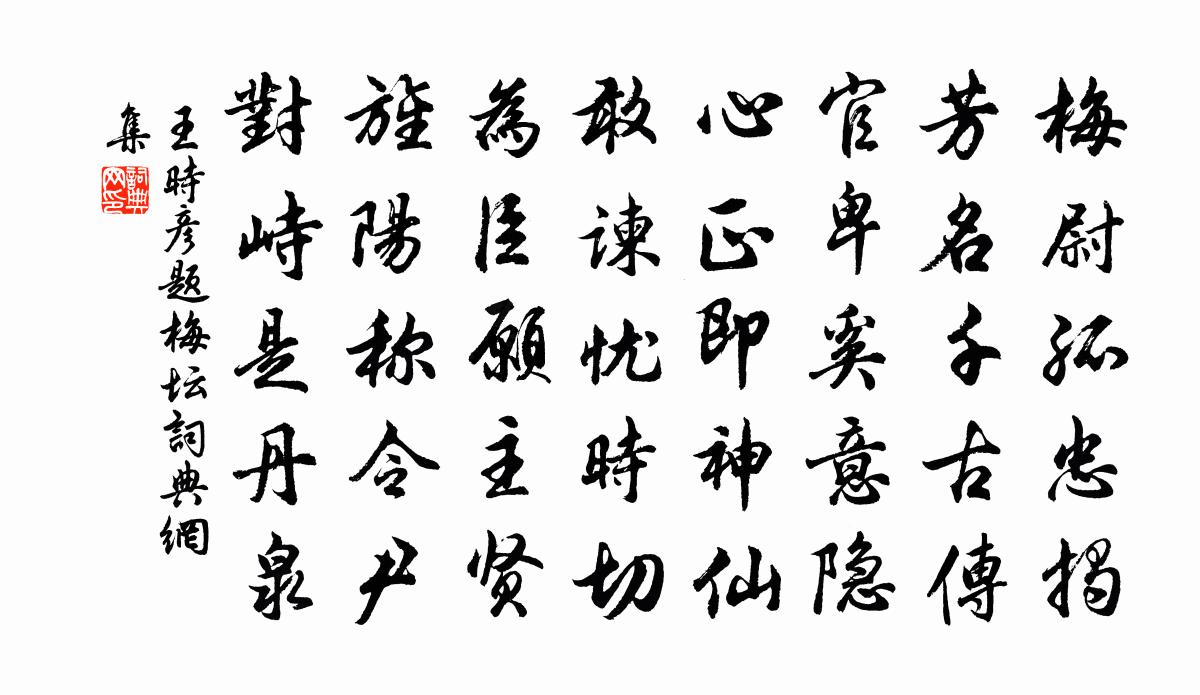 梅尉孤忠揭
芳名千古傳
官卑奚意隐
心正即神仙
敢谏忧時切
為臣願主贤
旌陽称令尹
對峙是丹泉
王時彦题梅坛詞典網
集
詞典網印